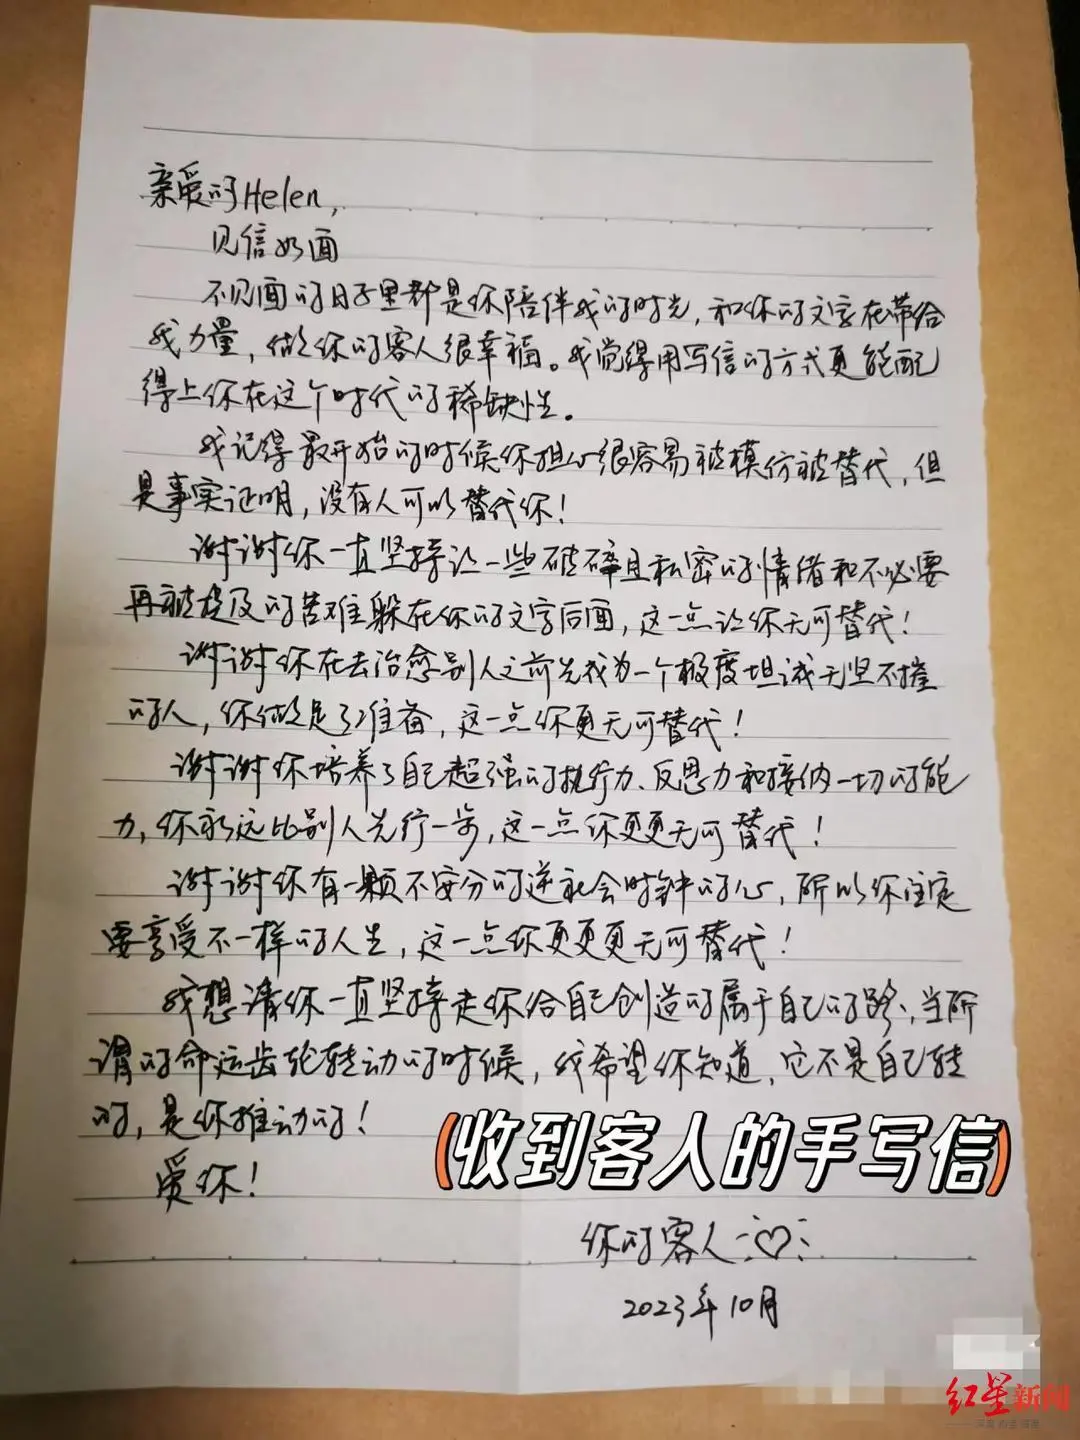 亲爱的Helen,
见信如面
不见面的日子里都是你陪伴我的时光,和你的文字在带给
我力量,做你的客人很幸福。我觉得用写信的方式更能配
得上你在这个时代的稀缺性。
我记得最开始的时候你担心很容易被模仿被替代,但
是事实证明,没有人可以替代你!
谢谢你一直坚持让一些破碎且私密的情绪和不必要
再被提及的苦难躲在你的文字后面,这一点让你无可替代!
谢谢你在去治愈别人之前先成为一个极度坦诚无坚不摧
的人,你做足了准备,这一点你更无可替代!
谢谢你培养了自己超强的执行力、反思力和接纳一切的能
力,你永远比别人先行一步,这一点你更更无可替代!
谢谢你有一颗不安分的逆社会时钟的心,所以你注定
要享受不一样的人生,这一点你更更更无可替代!
我想请你一直坚持走你给自己创造的属于自己的路,当所
谓的命运齿轮转动的时候,我希望你知道,它不是自己转
的,是你推动的!
(收到客人的手写信)
爱你!
你的客人
2023年10月
红星新闻